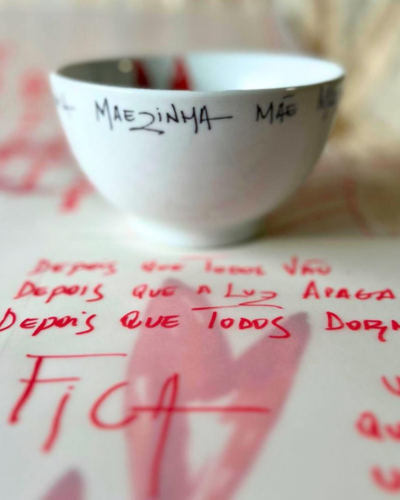 MAEZINHA MÃE
DEPOIS QUE TODOS VÃO
DEPOIS QUE A LUZ APAGA
DEPOIS QUE TODOS DORM
FICA